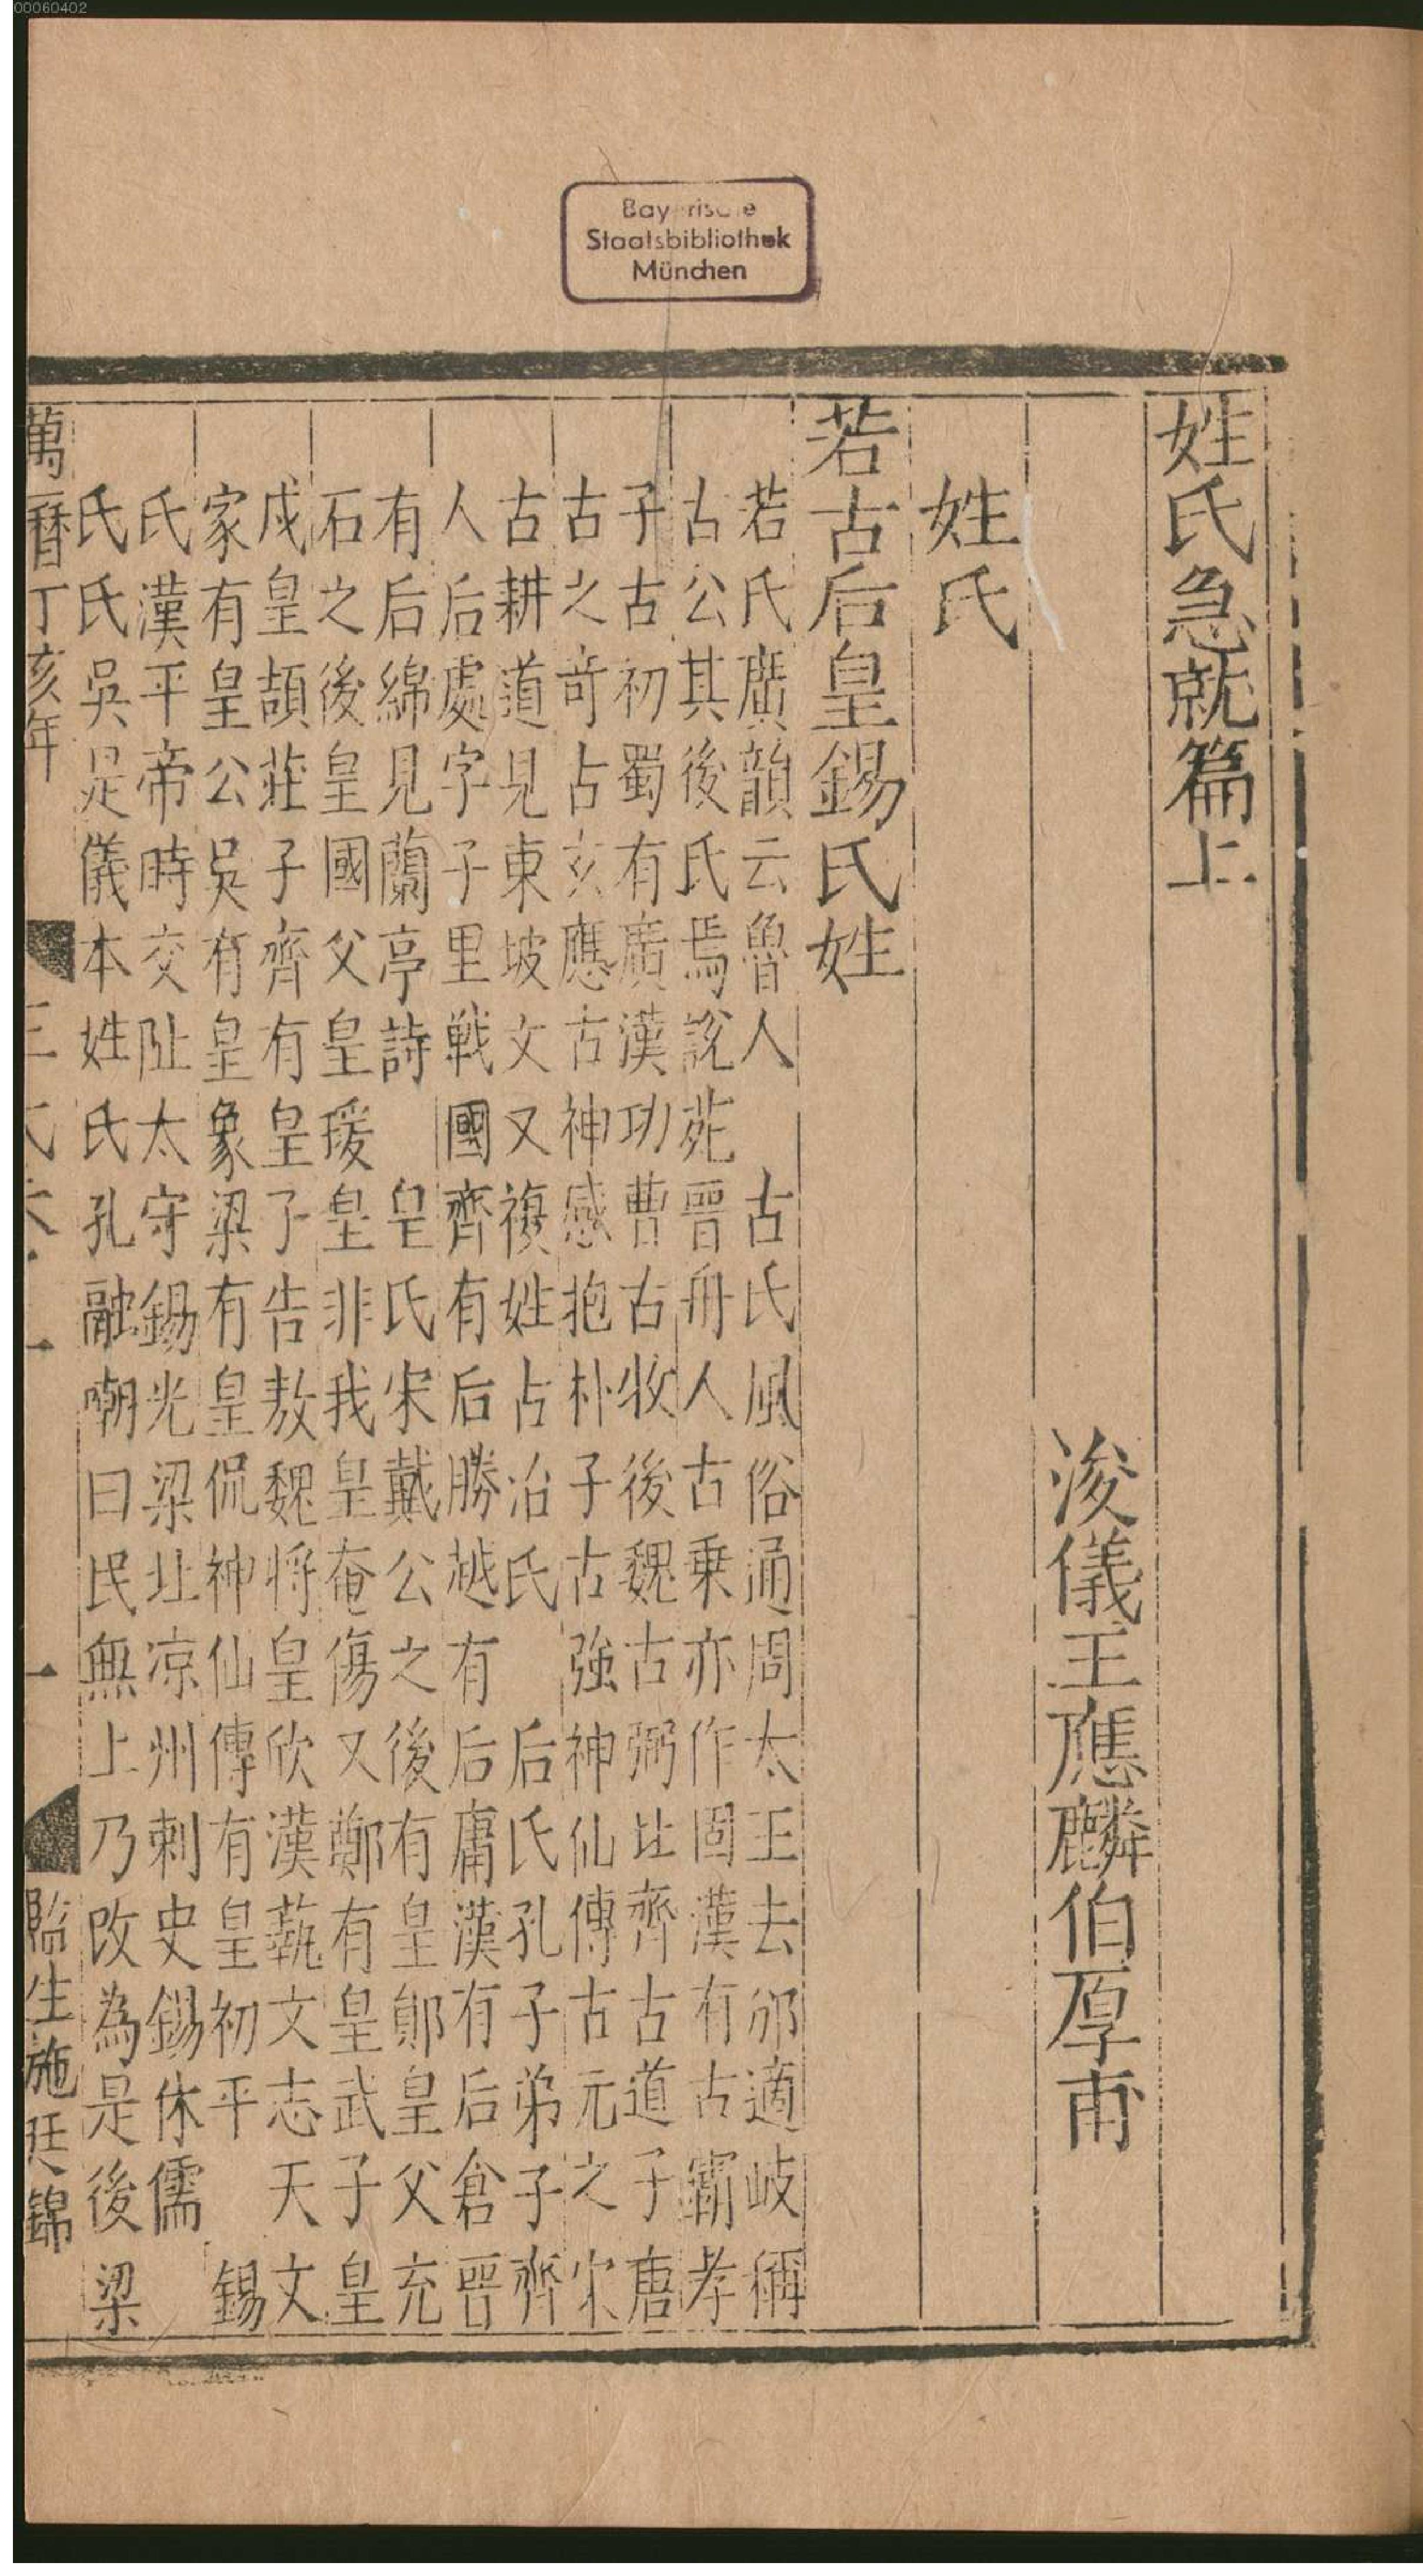 00060402
Bayerische
Staatsbibliothek
München
姓氏急就篇上
浚儀王應麟伯厚甫
姓氏
若古后皇錫氏姓
若氏廣韻云魯人 古氏風俗通周太王去邠適岐稱
古公其後氏焉說苑晉舟人古乗亦作固漢有古霸孝
子古初蜀有廣漢功曹古牧後魏古弼北齊古道子唐
古之奇占玄應古神感抱朴子古強神仙傳古元之宋
古耕道見東坡文又複姓占冶氏 后氏孔子弟子齊
人后處字子里戦國齊有后勝越有后庸漢有后倉晉
有后綿見蘭亭詩 皇氏宋戴公之後有皇鄖皇父充
石之後皇國父皇瑗皇非我皇奄傷又鄭有皇武子皇
戍皇頡莊子齊有皇子告敖魏將皇欣漢蓺文志天文
家有皇公吳有皇象梁有皇侃神仙傳有皇初平 錫
氏漢平帝時交阯太守錫光梁北凉州刺史錫休儒
氏氏吳是儀本姓氏孔融嘲曰民無上乃改為是後梁
萬曆丁亥年
一
監生施廷錦